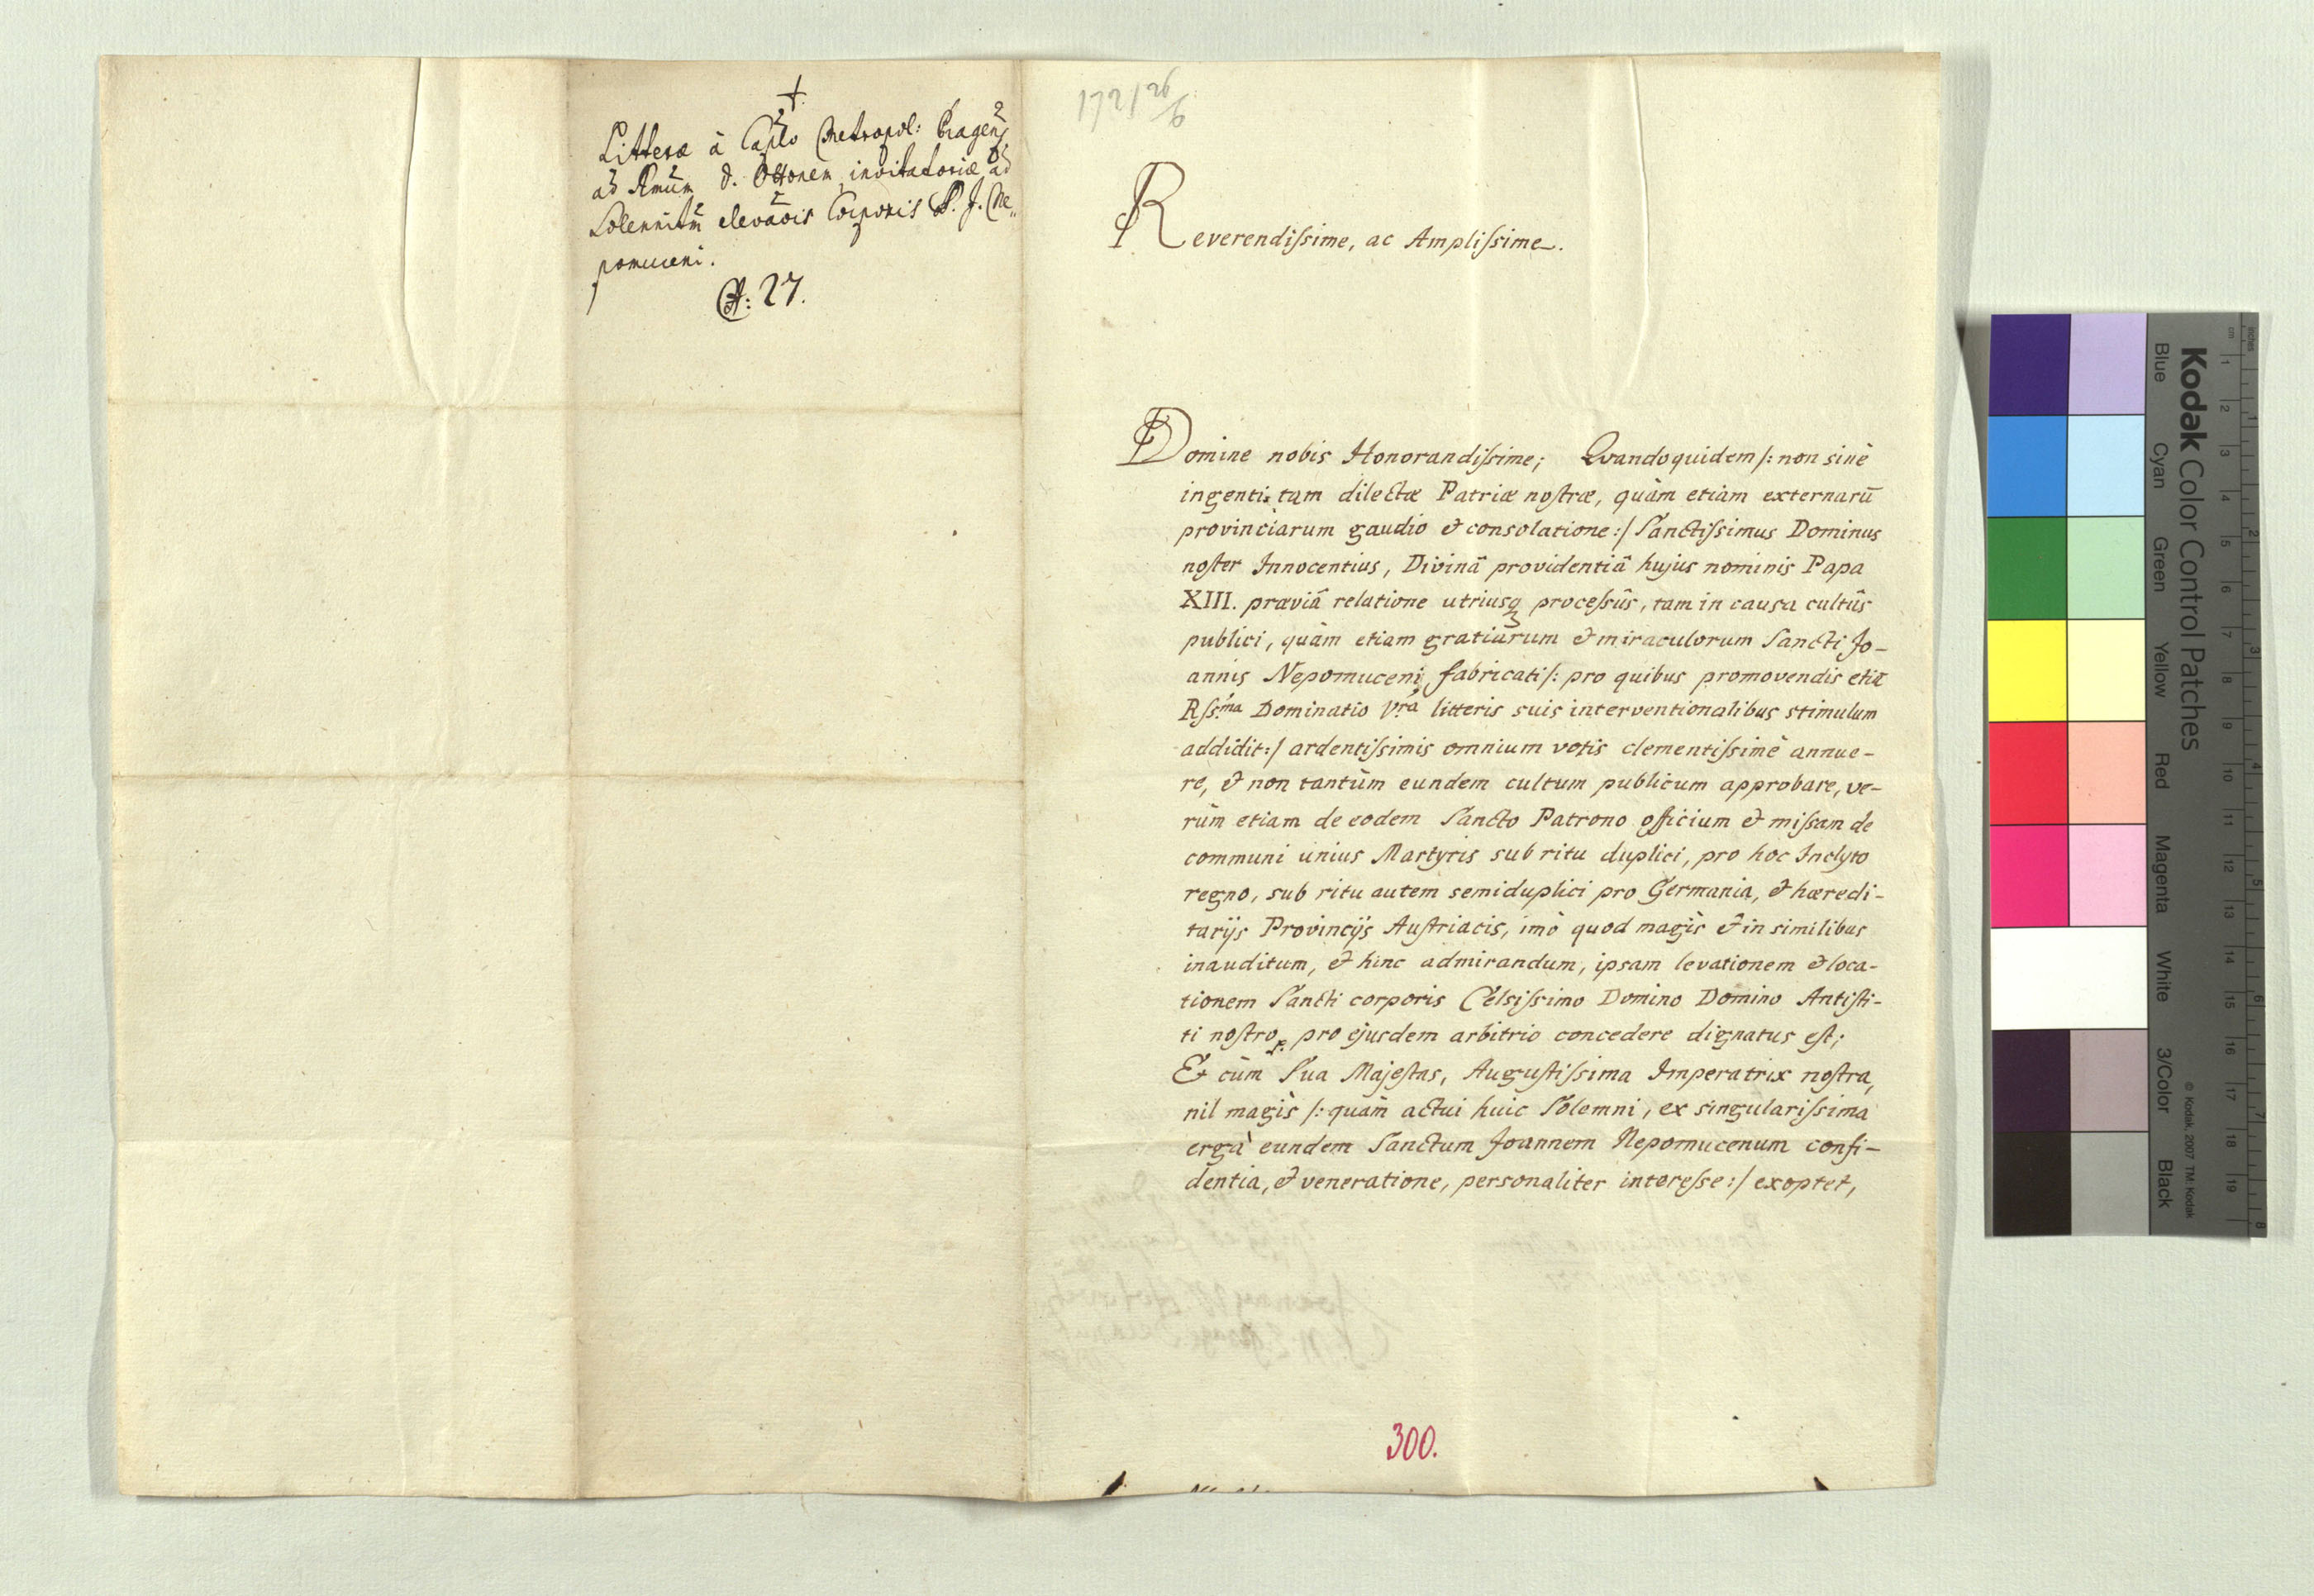 †
Litteræ à Caplo Metropol: Pragens
ad Rmum D. Ottonem invitatoriæ ad
Solennitm elevaōis Corporis S. J. Ne„
pomuceni.
A: 27.
1721 26/6
Reverendissime, ac Amplissime.
Domine nobis Honorandissime; Quandoquidem /: non sinè
ingenti, tam dilectæ Patriæ nostræ, quàm etiam externarū
provinciarum gaudio & consolatione :/ Sanctissimus Dominus
noster Innocentius, Divinâ providentiâ hujus nominis Papa
XIII. præviâ relatione utriusq processûs, tam in causa cultûs
publici, quàm etiam gratiarum & miraculorum Sancti Jo-
annis Nepomuceni, fabricati /: pro quibus promovendis etiā
Rss:ma Dominatio Vra litteris suis interventionalibus stimulum
addidit :/ ardentissimis omnium votis clementissimè annue-
re, & non tantùm eundem cultum publicum approbare, ve-
rùm etiam de eodem Sancto Patrono officium & missam de
communi unius Martyris sub ritu duplici, pro hoc Inclyto
regno, sub ritu autem semiduplici pro Germania, & hæredi-
tarijs Provincijs Austriacis, imò quod magis & in similibus
inauditum, & hinc admirandum, ipsam levationem & loca-
tionem Sancti corporis Celsissimo Domino Domino Antisti-
ti nostro, pro ejusdem arbitrio concedere dignatus est;
Et cùm Sua Majestas, Augustissima Imperatrix nostra,
nil magis /: quàm actui huic Solemni, ex singularissima
ergà eundem Sanctum Joannem Nepomucenum confi-
dentia, & veneratione, personaliter interesse :/ exoptet,
300.
Kodak Color Control Patches
Blue Cyan Green Yellow Red Magenta White 3/Color Black
© Kodak, 2007 TM: Kodak
cm 1 2 3 4 5 6 7 8 9 10 11 12 13 14 15 16 17 18 19
inches 1 2 3 4 5 6 7 8